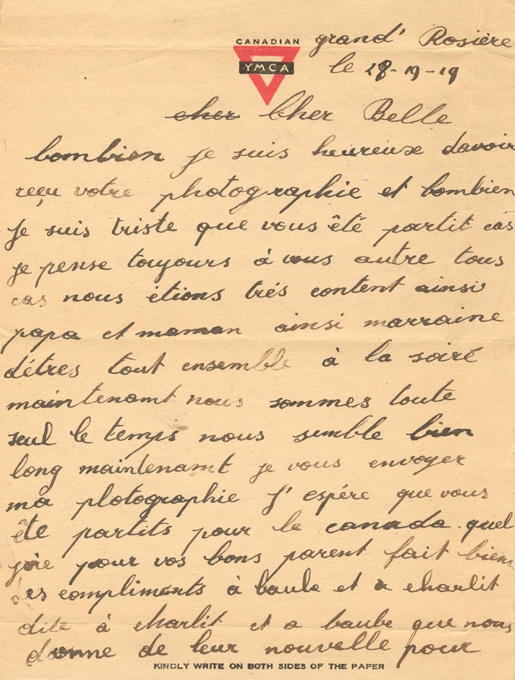 CANADIAN
YMCA
grand' Rosière
le 28-19-19
cher Cher Belle
bombien je suis heureuse davoir
reçu votre photographie et bombien
je suis triste que vous été partit cas
je pense toujours à vous autre tous
cas nous étions trés content ainsi
papa et maman ainsi marraine
détres tout ensemble à la soiré
maintenamt nous sommes toute
seul le temps nous semble bien
long maintenamt je vous envoyer
ma photographie j'espére que vous
éte partits pour le canada quel
joie pour vos bons parent fait bien
des compliments à baube et a charlit
dite à charlit et a baube que nous
donne de leur nouvelle pour
KINDLY WRITE ON BOTH SIDES OF THE PAPER